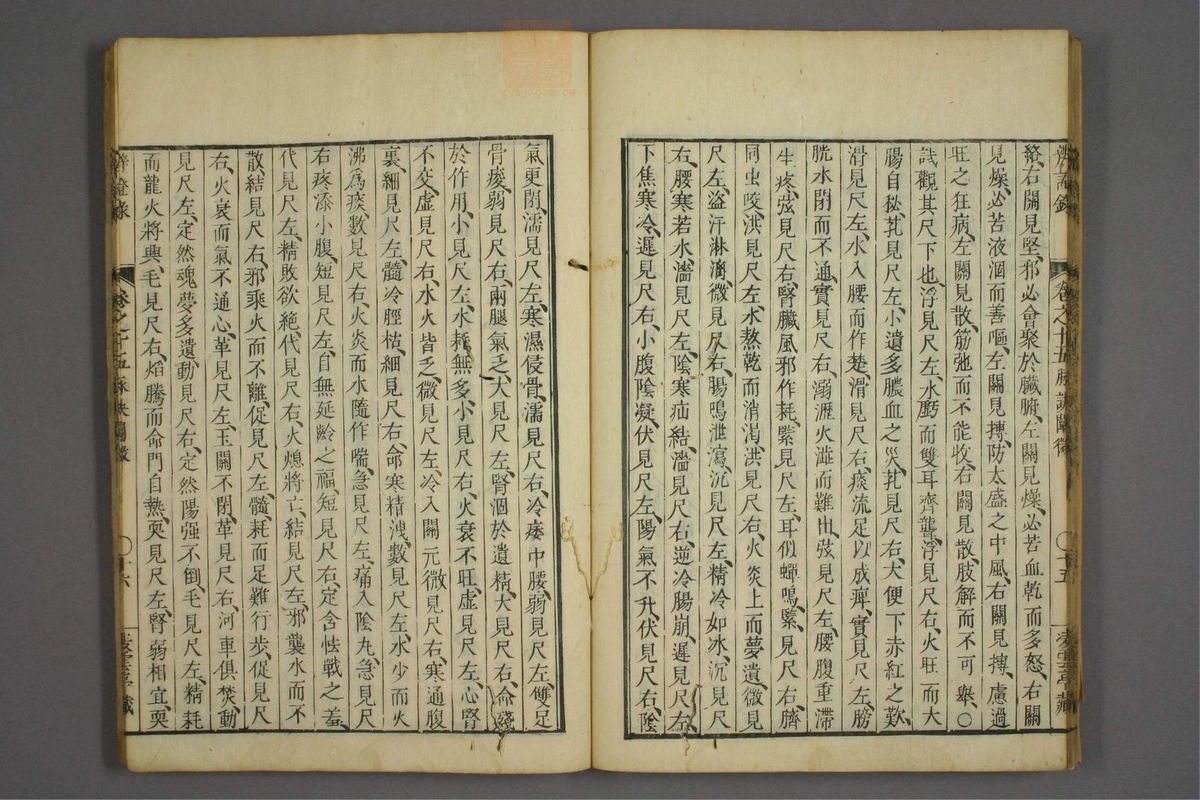 辨證錄 卷之十五 脉訣闡微 〇 十五 藏
豁、右關見堅、邪必會聚於臟腑、左關見燥、必苦血乾而多怒、右關
見燥、必苦液涸而善嘔、左關見摶、防太盛之中風、右關見摶、慮過
旺之狂病、左關見散、筋弛而不能收、右關見散、肢解而不可舉、〇
試觀其尺下也、浮見尺左、水虧而雙耳齊聾、浮見尺右、火旺而大
腸自秘、芤見尺左、小遺多膿血之災、芤見尺右、大便下赤紅之歎、
滑見尺左、水入腰而作楚、滑見尺右、痰流足以成痺、實見尺左、膀
胱水閉而不通、實見尺右、溺瀝火澁而難出、弦見尺左、腰腹重滯
生疼、弦見尺右、腎臟風邪作耗、緊見尺左、耳似蟬鳴、緊見尺右、臍
同虫咬、洪見尺左、水熬乾而消渴、洪見尺右、火炎上而夢遺、微見
尺左、盜汗淋漓、微見尺右、腸鳴泄瀉、沉見尺左、精冷如冰、沉見尺
右、腰寒若水、濇見尺左、陰寒疝結、濇見尺右、逆冷腸崩、遲見尺左、
下焦寒冷、遲見尺右、小腹陰凝、伏見尺左、陽氣不升、伏見尺右、陰
氣更閉、濡見尺左、寒濕侵骨、濡見尺右、冷痿中腰、弱見尺左、雙足
骨痠、弱見尺右、兩腿氣乏、大見尺左、腎涸於遺精、大見尺右、命殘
於作用、小見尺左、水耗無多、小見尺右、火衰不旺、虛見尺左、心腎
不交、虛見尺右、水火皆乏、微見尺左、冷入關元、微見尺右、寒通腹
裏、細見尺左、髓冷脛枯、細見尺右、命寒精洩、數見尺左、水少而火
沸爲痰、數見尺右、火炎而水隨作喘、急見尺左、痛入陰丸、急見尺
右、疼添小腹、短見尺左、自無延齡之福、短見尺右、定含怯戰之羞、
代見尺左、精敗欲絶、代見尺右、火熄將亡、結見尺左、邪襲水而不
散、結見尺右、邪乘火而不離、促見尺左、髓耗而足難行步、促見尺
右、火衰而氣不通心、革見尺左、玉關不閉、革見尺右、河車俱焚、動
見尺左、定然魂夢多遺、動見尺右、定然陽强不倒、毛見尺左、精耗
而龍火將興、毛見尺右、焰騰而命門自熱、耎見尺左、腎弱相宜、耎
辨證錄 卷之十五 脉訣闡微 〇 十六 藏